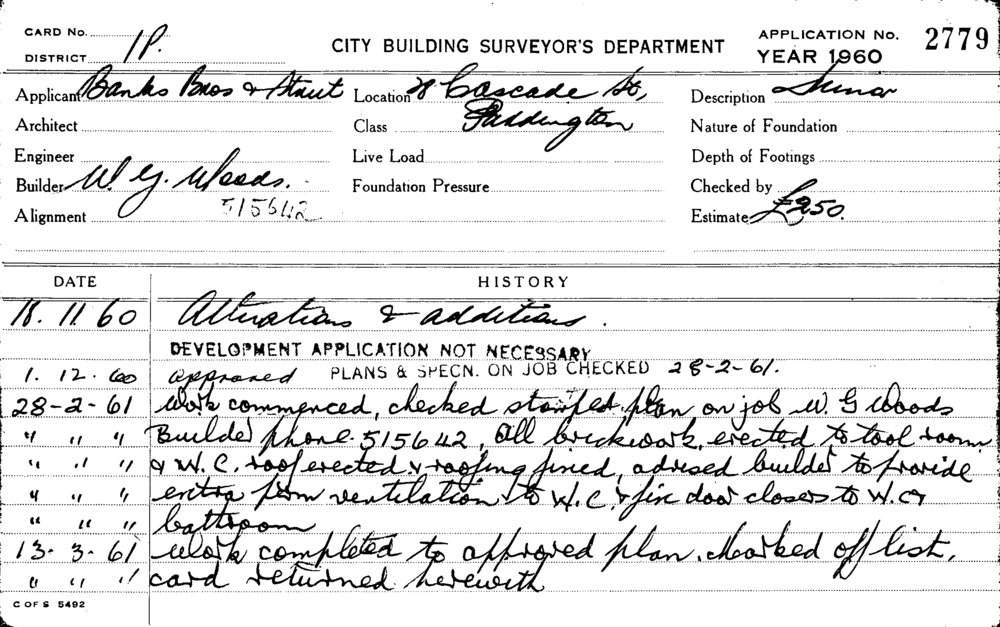 CARD No.
DISTRICT 1P.
CITY BUILDING SURVEYOR'S DEPARTMENT
APPLICATION No. 2779
YEAR 1960
Applicant Banks Bros & Street Location 28 Cascade St, Description Minor
Architect Class Paddington Nature of Foundation
Engineer Live Load Depth of Footings
Builder W. G. Woods. Foundation Pressure Checked by
Alignment 515642 Estimate £250.
DATE HISTORY
18. 11. 60 Alterations & additions.
DEVELOPMENT APPLICATION NOT NECESSARY
1. 12. 60 approved PLANS & SPECN. ON JOB CHECKED 28-2-61.
28-2-61 Work commenced, checked stamped plan on job W. G Woods
" " " Builder phone 515642, All brickwork erected to tool room
" " " & W.C. roof erected & roofing fixed, advised builder to provide
" " " extra perm ventilation to W.C. & fix door closers to W.C &
" " " bathroom
13-3-61 Work completed to approved plan. Marked off list,
" " " card returned herewith
C OF S 5492